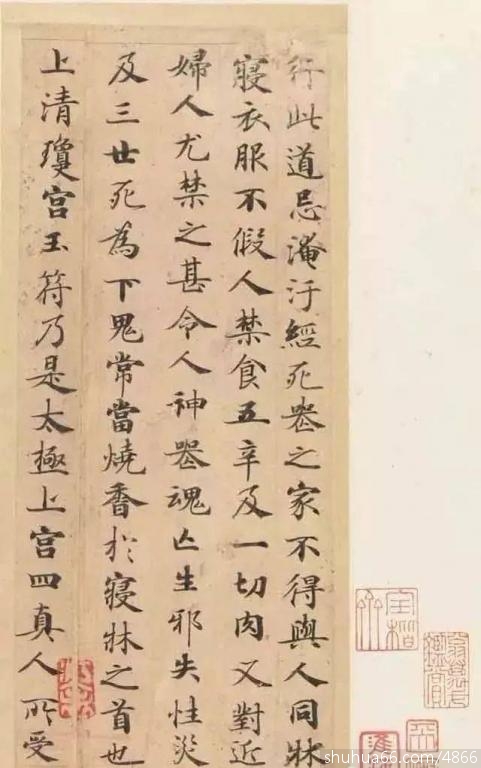 行此道忌淹汙經死喪之家不得與人同牀
寢衣服不假人禁食五辛及一切肉又對近
婦人尤禁之甚令人神喪魂亡生邪失性災
及三世死為下鬼常當燒香於寢牀之首也
上清瓊宮玉符乃是太極上宮四真人所受
shuhua66.com/4866